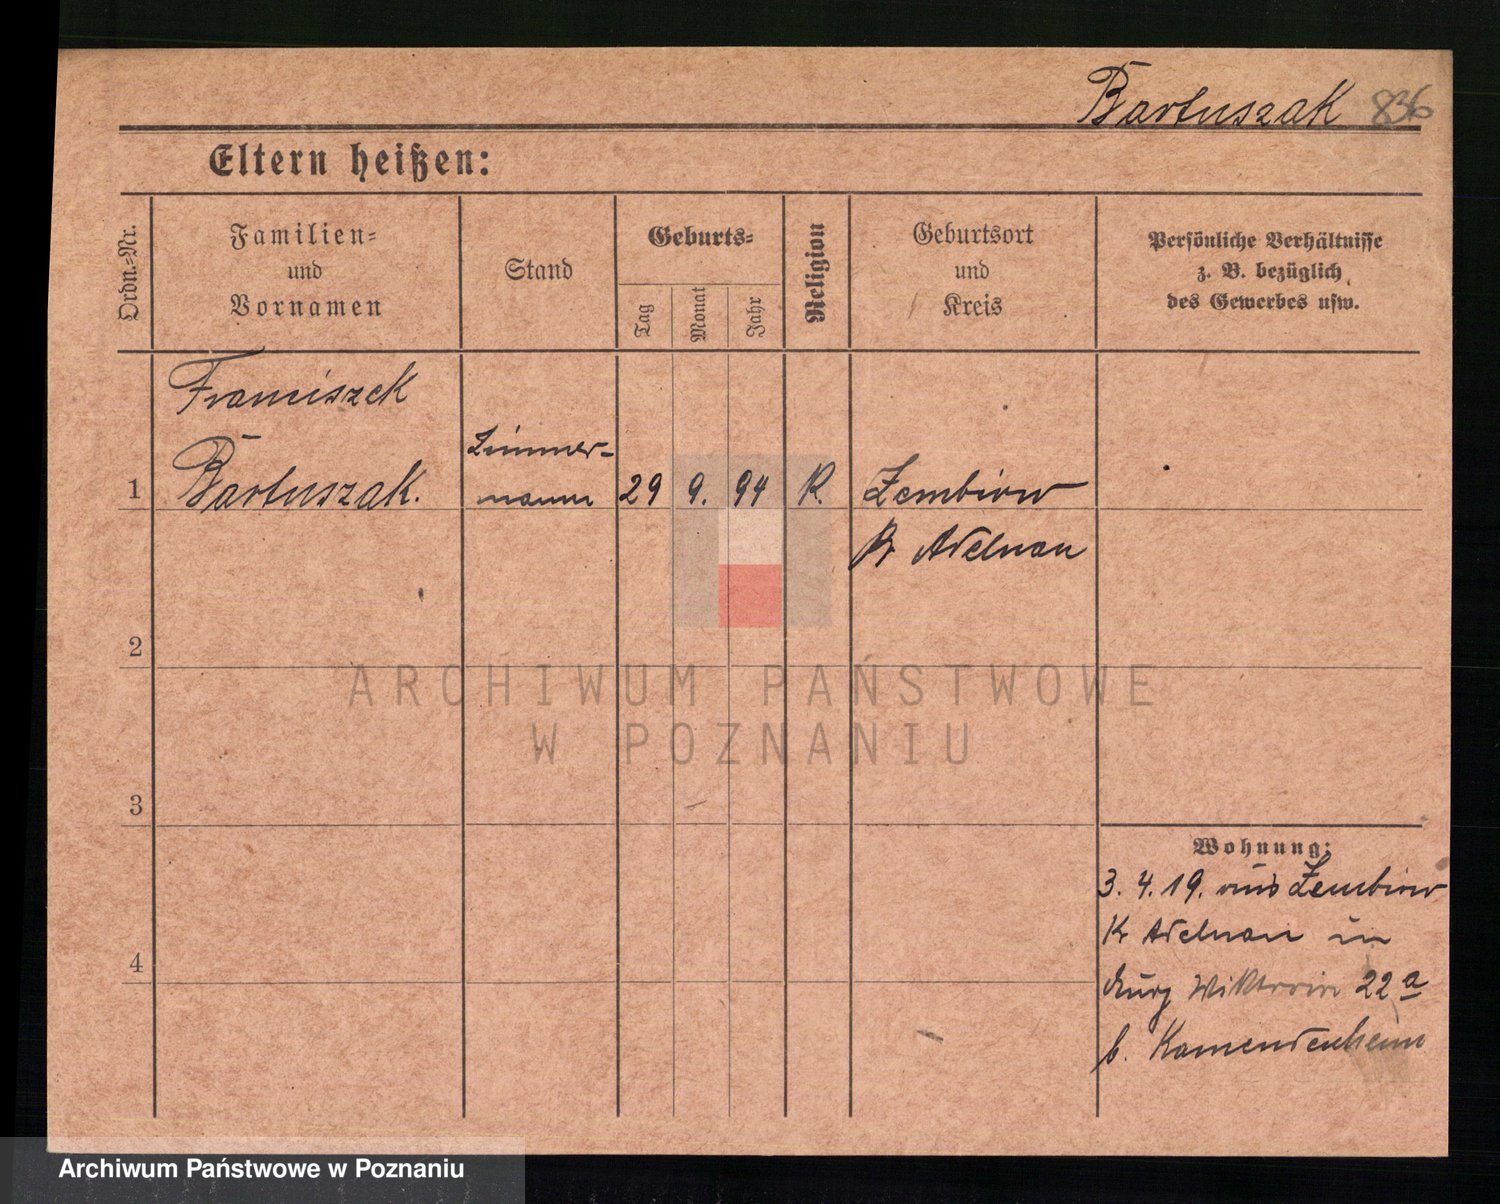 Bartuszak 836
Eltern heißen:
Ordn.-Nr.
Familien-
und
Vornamen
Stand
Geburts-
Tag
Monat
Jahr
Religion
Geburtsort
und
Kreis
Persönliche Verhältnisse
z. B. bezüglich
des Gewerbes usw.
Franciszek
Bartuszak.
1
Zimmer-
mann
29 9. 94 K.
Zembirow
Kr Adelnau
2
3
4
Wohnung:
3. 4. 19. aus Zembirow
Kr Adelnau in
22 a
b.
ARCHIWUM PAŃSTWOWE
W POZNANIU
Archiwum Państwowe w Poznaniu